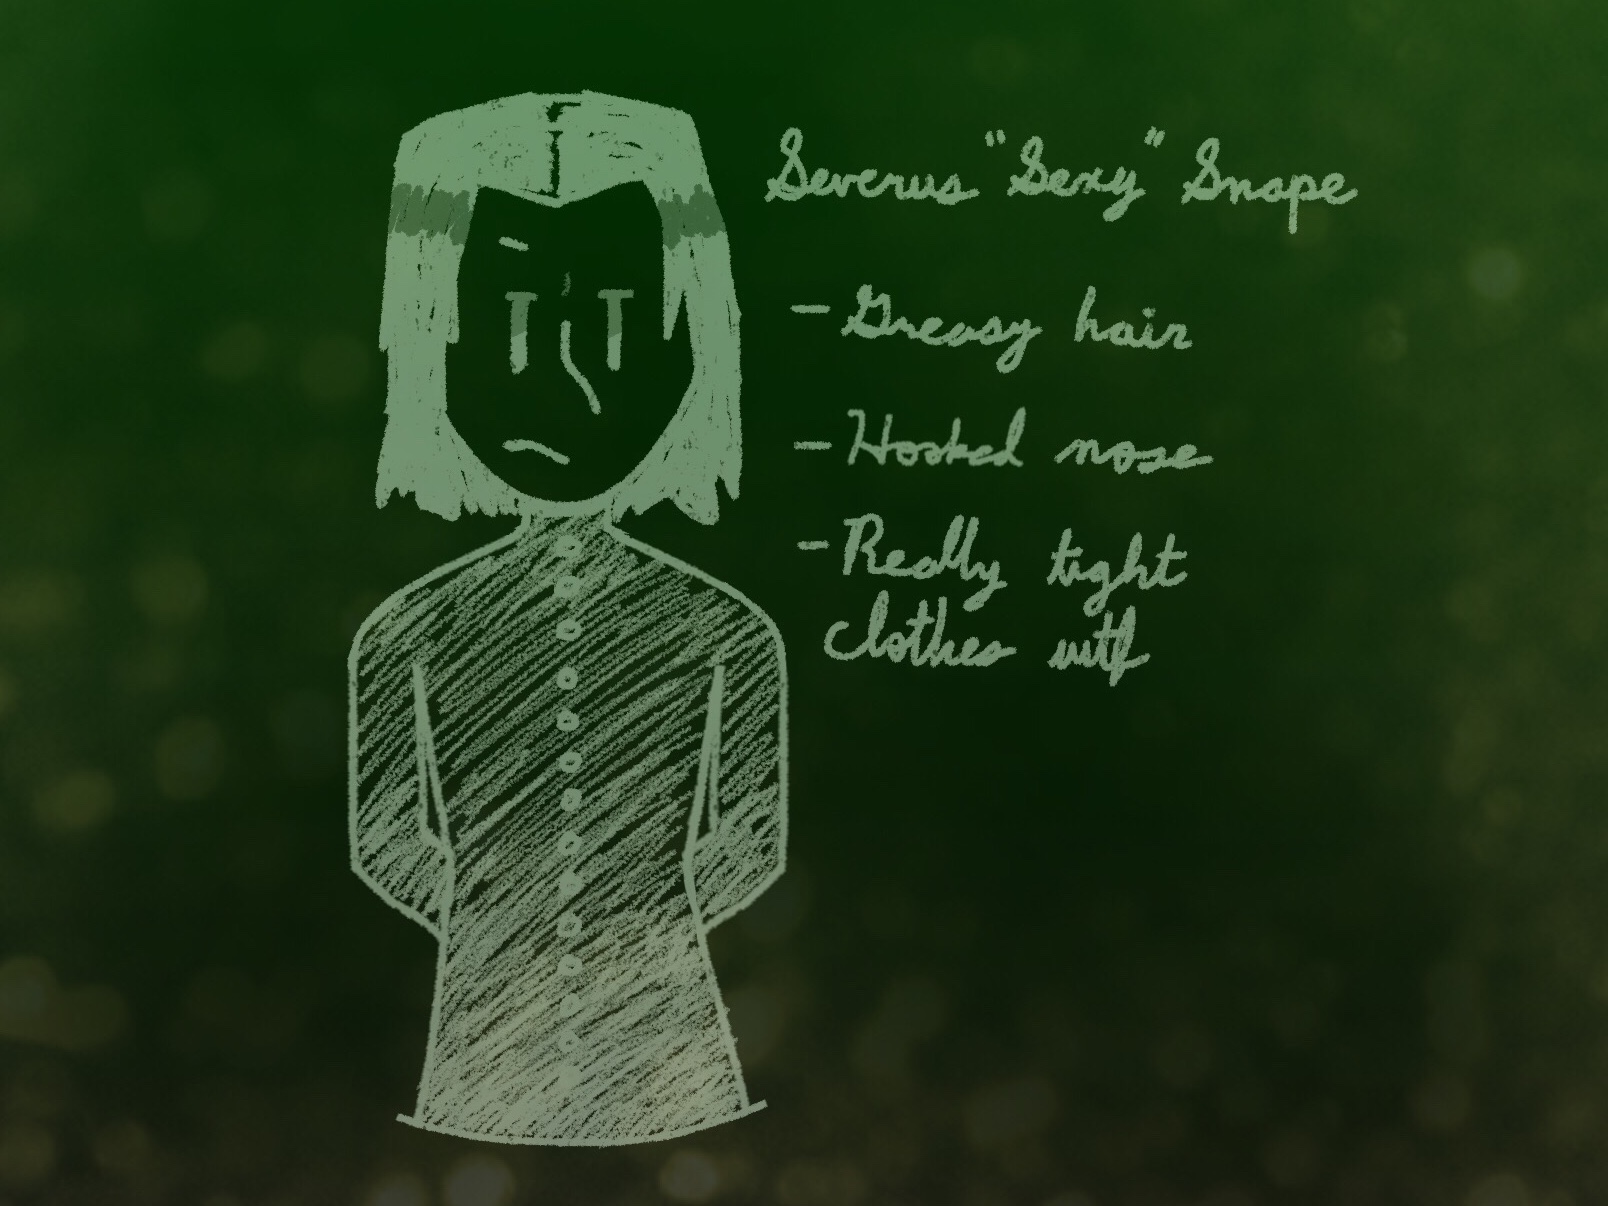 Severus "Sexy" Snape
- Greasy hair
- Hooked nose
- Really tight
clothes wtf